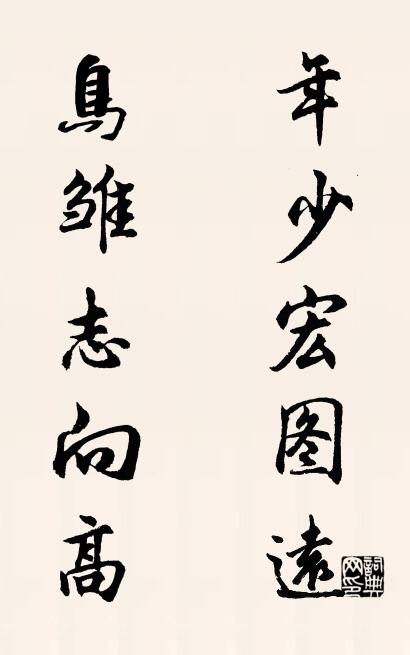 年少宏图遠
鳥雏志向高
詞典网印